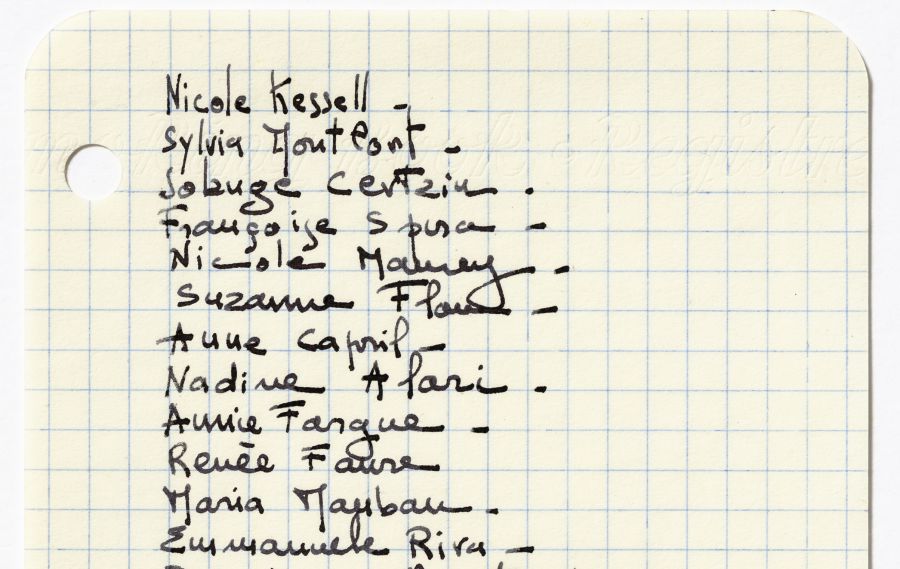 Nicole Kessell -
Sylvia Montfort -
Françoise Spira -
Nicole Maurey -
Suzanne Flon -
Anne Capril -
Nadine Alari -
Annie Fargue -
Renée Faure
Maria Mauban -
Emmanuele Riva -